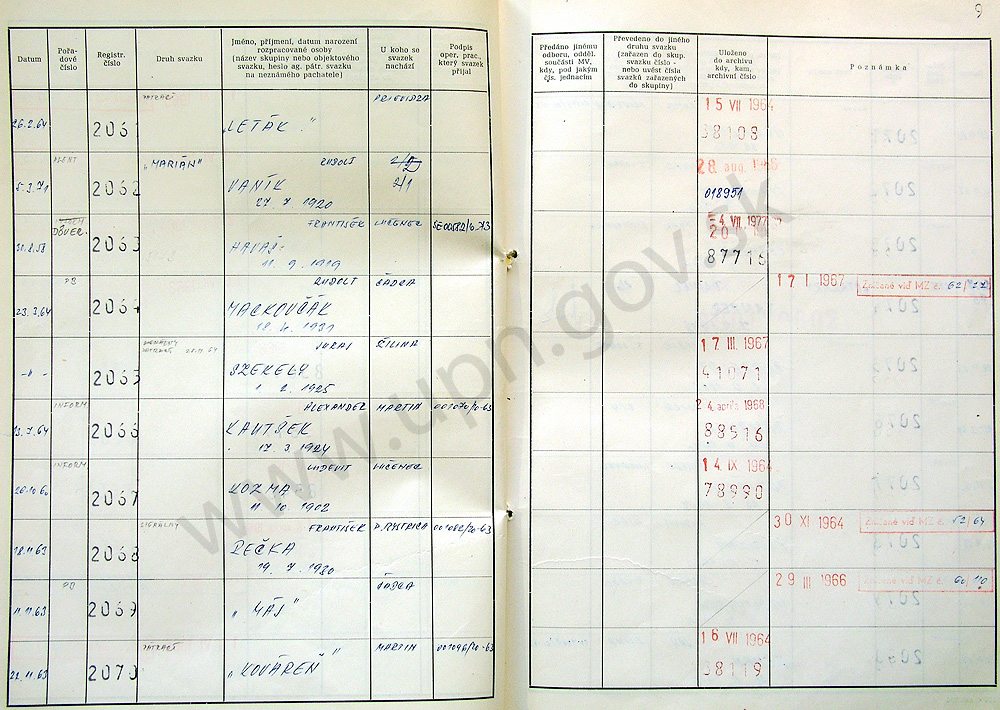 9
Datum
Pořa-
dové
číslo
Registr.
číslo
Druh svazku
Jméno, příjmení, datum narození
rozpracované osoby
(název skupiny nebo objektového
svazku, heslo ag. pátr. svazku
na neznámého pachatele)
U koho se
svazek
nachází
Podpis
oper. prac.,
který svazek
přijal
Předáno jinému
odboru, odděl.
součásti MV,
kdy, pod jakým
čís. jednacím
Převedeno do jiného
druhu svazku
(zařazen do skup.
svazku číslo -
nebo uvést čísla
svazků zařazených
do skupiny)
Uloženo
do archivu
kdy, kam,
archivní číslo
Poznámka
PÁTRACÍ
PRIEVIDZA
26.2.64
2061
„LETÁK"
15 VII 1964
38108
AGENT
„MARIÁN"
RUDOLF
2/1
5.3.71
2062
VANÍK
27 7 1920
28. aug. 1968
018951
DÔVER.
FRANTIŠEK
LUČENEC
2063
HAVAŠ
11 9 1919
4. VII. 1977
87716
RUDOLF
ČADCA
23.3.64
2064
MACKOVČÁK
18 4. 1931
17 I 1967
Zničené viď MZ č.
JURAJ
ŽILINA
- " -
2065
SZEKELY
1 2. 1925
17. III. 1967
41071
INFORM
ALEXANDER
MARTIN
001070/20-63
13.7.64
2066
KAUTŠEK
17 3. 1924
24. apríla 1968
88516
INFORM
ĽUDEVIT
LUČENEC
20.10.60
2067
KOZMA
11 10 1902
14. IX. 1964
78990
SIGNÁLNY
FRANTIŠEK
B. BYSTRICA
001082/20-63
18.11.63
2068
PEČKA
19. 7. 1930
30 XI 1964
Zničené viď MZ č. 52/64
11.11.63
2069
„MÁJ"
29 III 1966
Zničené viď MZ č.
PÁTRACÍ
MARTIN
001096/20-63
21.11.63
2070
„KOVÁREŇ"
16 VII 1964
38119
www.upn.gov.sk